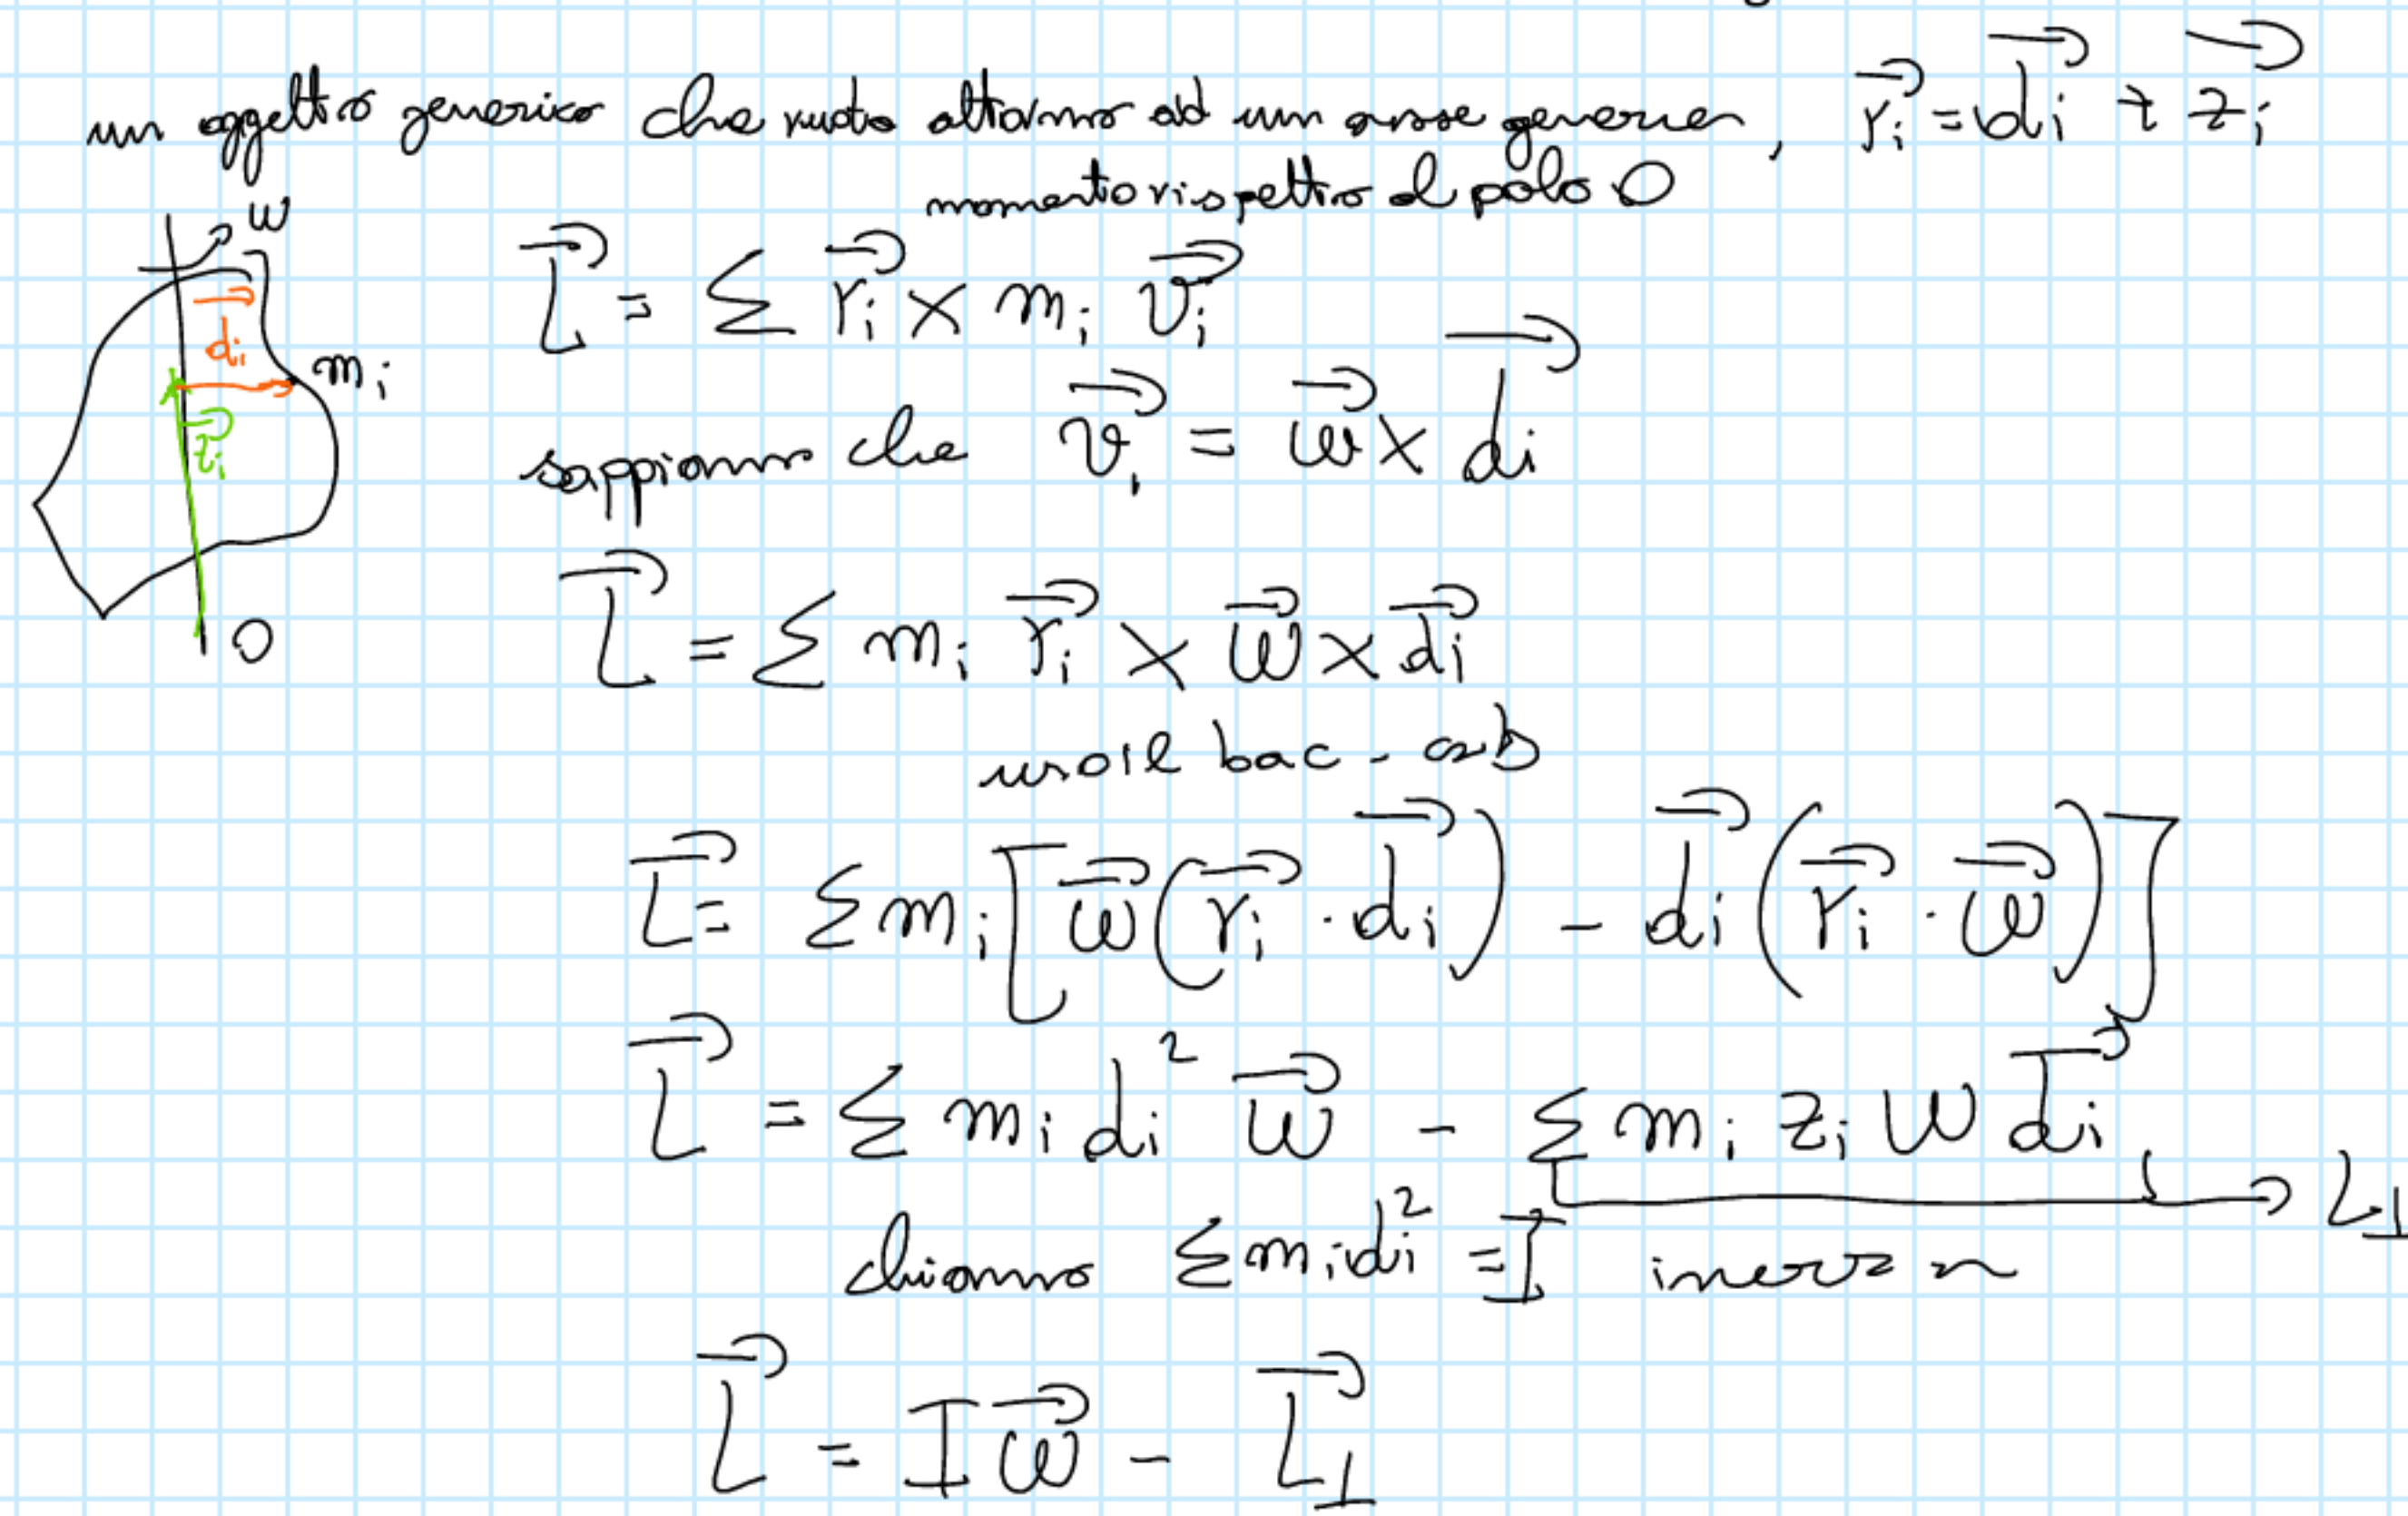 un oggetto generico che ruota attorno ad un asse generico, \vec{r_i} = \vec{d_i} + \vec{z_i}
momento rispetto al polo O
w
\vec{d_i}
m_i
\vec{z_i}
O
\vec{L} = Σ \vec{r_i} × m_i \vec{v_i}
sappiamo che \vec{v_i} = \vec{w} × \vec{d_i}
\vec{L} = Σ m_i \vec{r_i} × \vec{w} × \vec{d_i}
uso il bac - cab
\vec{L} = Σ m_i [\vec{w} (\vec{r_i} · \vec{d_i}) - \vec{d_i} (\vec{r_i} · \vec{w})]
\vec{L} = Σ m_i d_i^2 \vec{w} - Σ m_i z_i w \vec{d_i} → L_⊥
chiamo Σ m_i d_i^2 = I inerzia
\vec{L} = I \vec{w} - \vec{L}_⊥